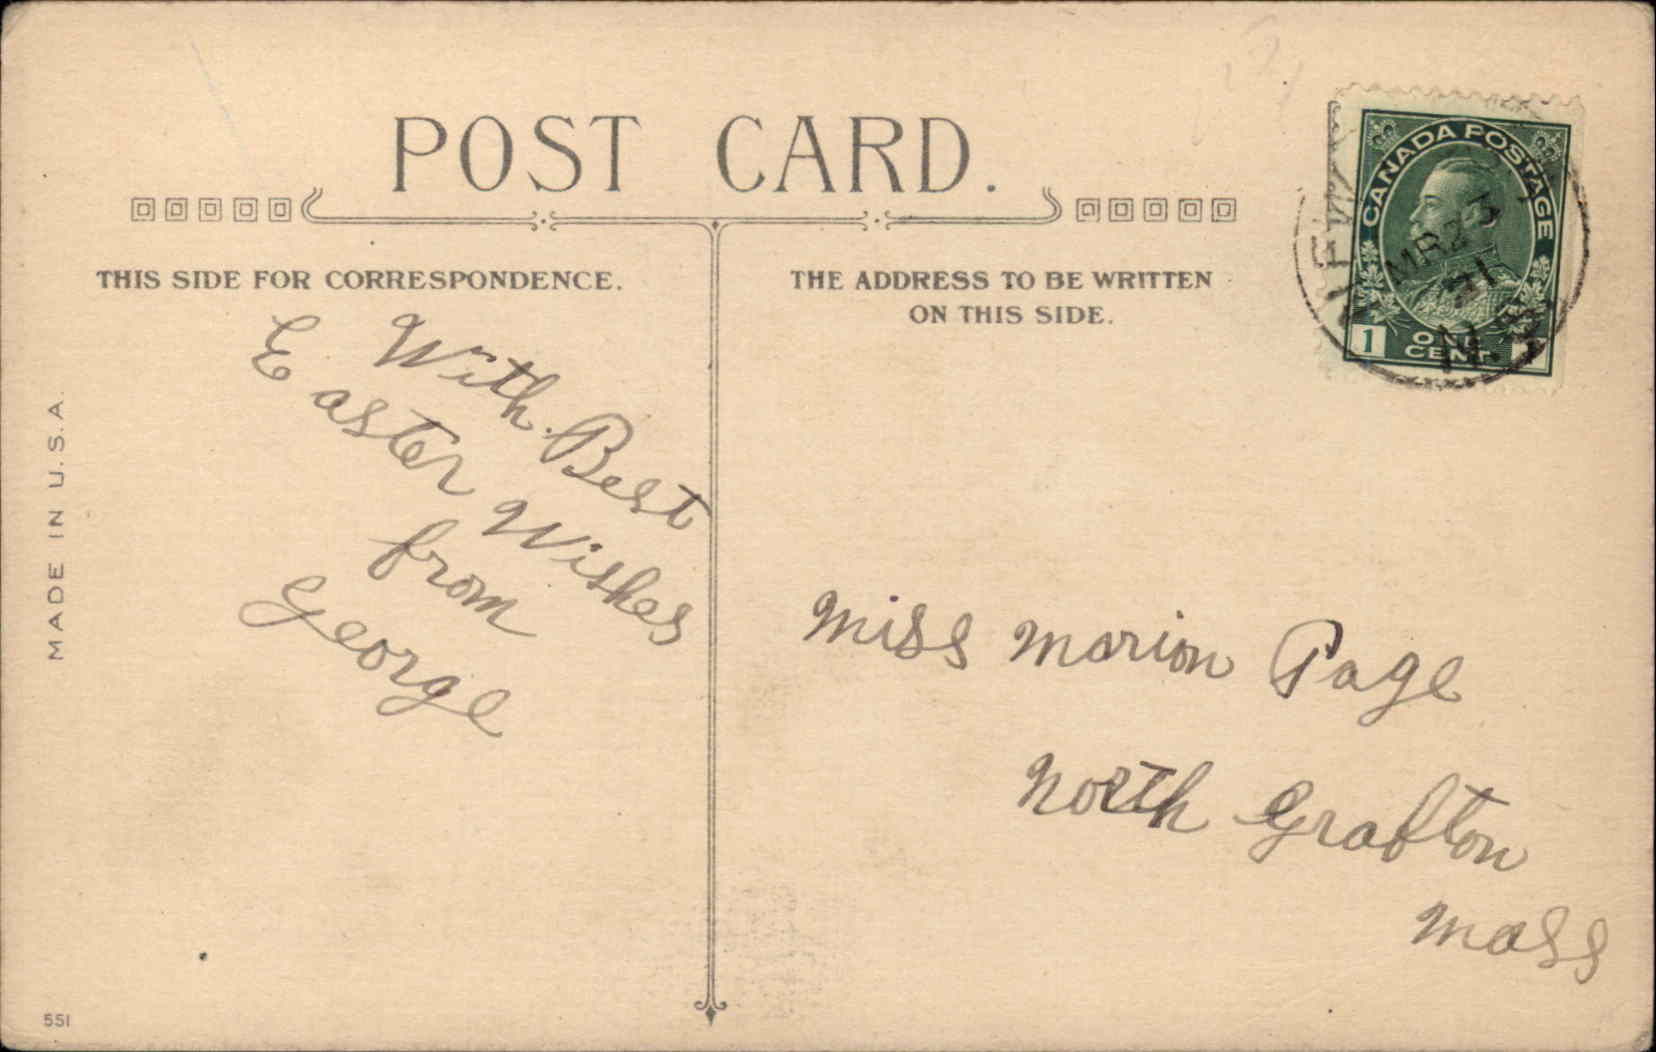 POST CARD.
THIS SIDE FOR CORRESPONDENCE.
THE ADDRESS TO BE WRITTEN
ON THIS SIDE.
CANADA POSTAGE
MR 2
1 ONE CENT
With Best
Easter Wishes
from
George
Miss Marion Page
North Grafton
Mass
MADE IN U.S.A.
551